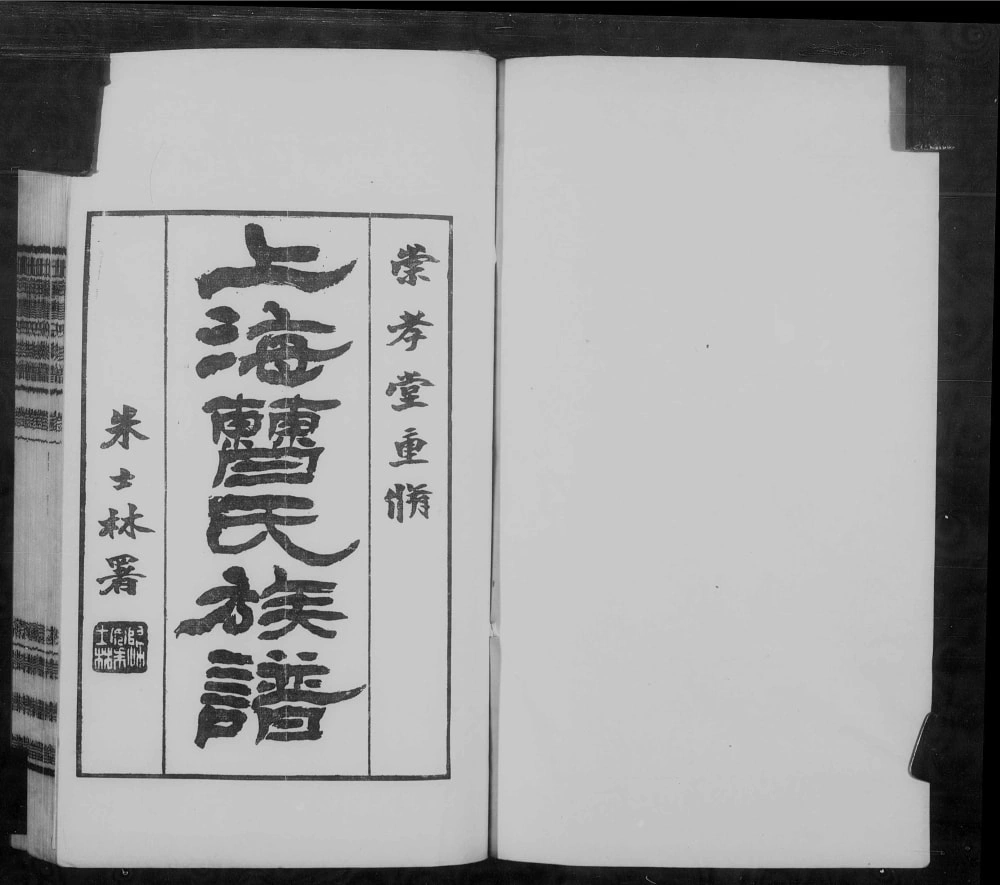 崇孝堂重脩
上海曹氏族譜
朱士林署